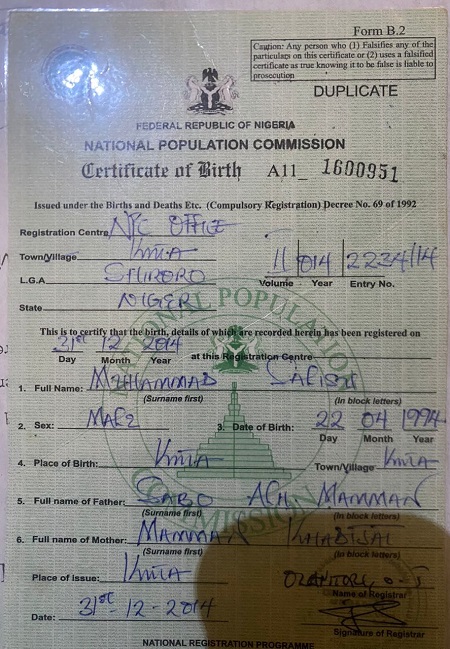 Form B.2
Caution: Any person who (1) Falsifies any of the
particulars on this certificate or (2) uses a falsified
certificate as true knowing it to be false is liable to
prosecution
DUPLICATE
FEDERAL REPUBLIC OF NIGERIA
NATIONAL POPULATION COMMISSION
Certificate of Birth A11_ 1600951
Issued under the Births and Deaths Etc. (Compulsory Registration) Decree No. 69 of 1992
Registration Centre NPC OFFICE
Town/Village KUTA
L.G.A SHIRORO
II 014 2234/14
Volume Year Entry No.
State NIGER
This is to certify that the birth, details of which are recorded herein has been registered on
31st 12 2014 at this Registration Centre
Day Month Year
1. Full Name: MUHAMMAD
(Surname first) (In block letters)
2. Sex: MALE 3. Date of Birth: 22 04 1994
Day Month Year
4. Place of Birth: KUTA Town/Village KUTA
5. Full name of Father: SABO ALH MAMMAN
(Surname first) (In block letters)
6. Full name of Mother: MAMMAN KHADIJAT
(Surname first) (In block letters)
Place of Issue: KUTA
Name of Registrar
Date: 31st-12-2014
Signature of Registrar
NATIONAL REGISTRATION PROGRAMME
NATIONAL POPULATION
COMMISSION